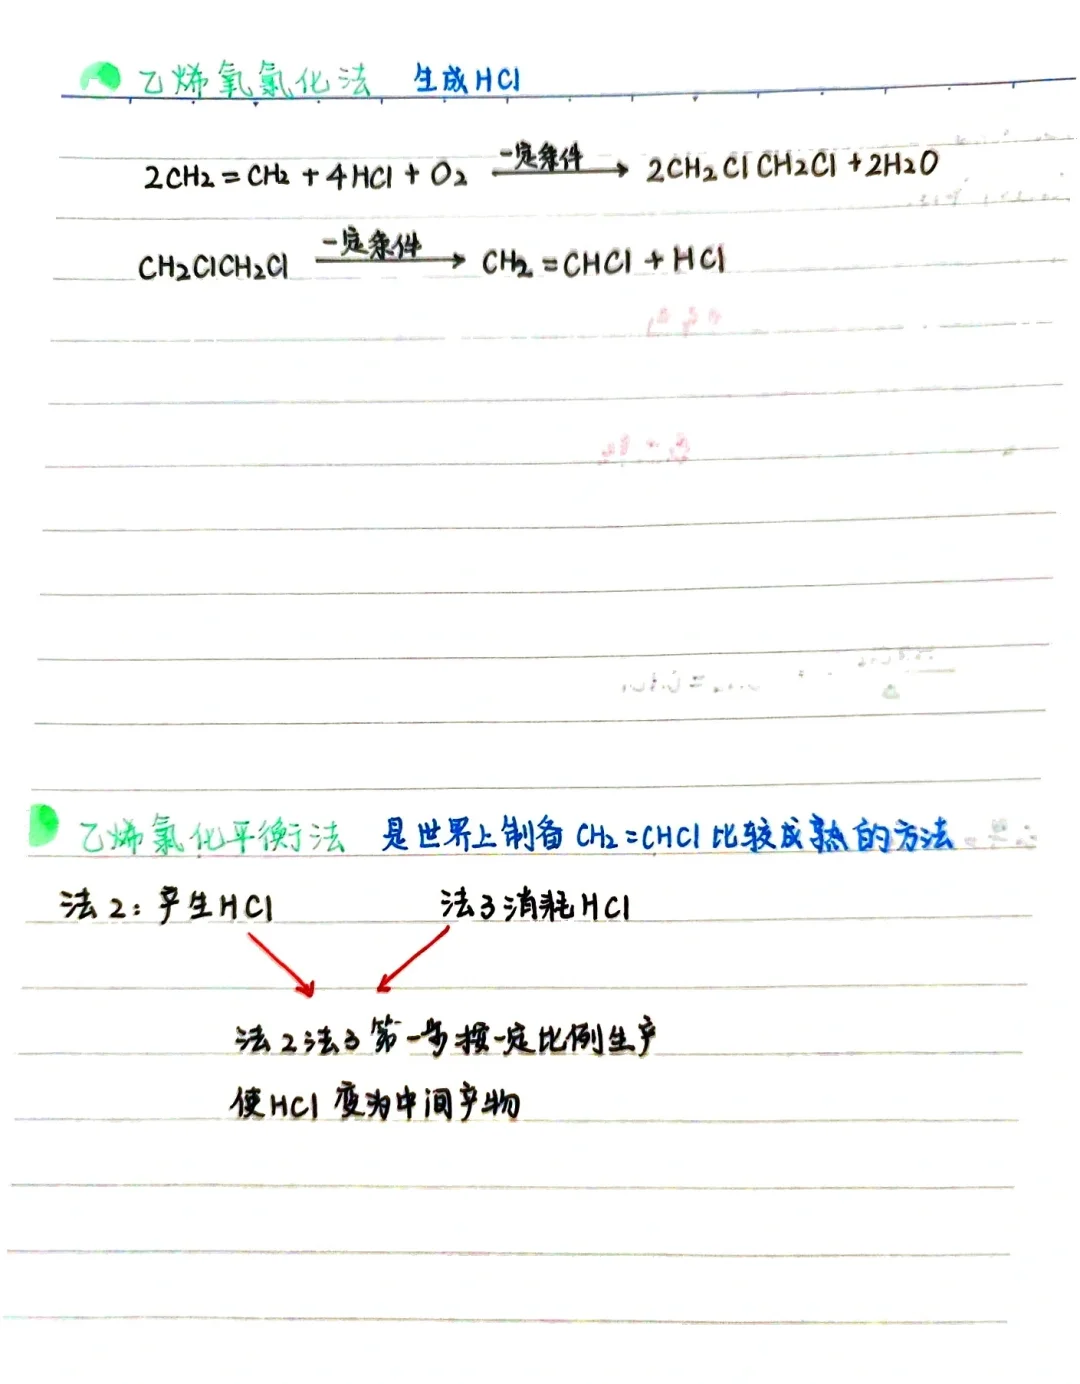 乙烯氧氯化法 生成HCl
2CH2=CH2+4HCl+O2 一定条件→ 2CH2ClCH2Cl+2H2O
CH2ClCH2Cl 一定条件→ CH2=CHCl+HCl
乙烯氯化平衡法 是世界上制备CH2=CHCl比较成熟的方法
法2:产生HCl 法3消耗HCl
法2法3第一步按一定比例生产
使HCl变为中间产物